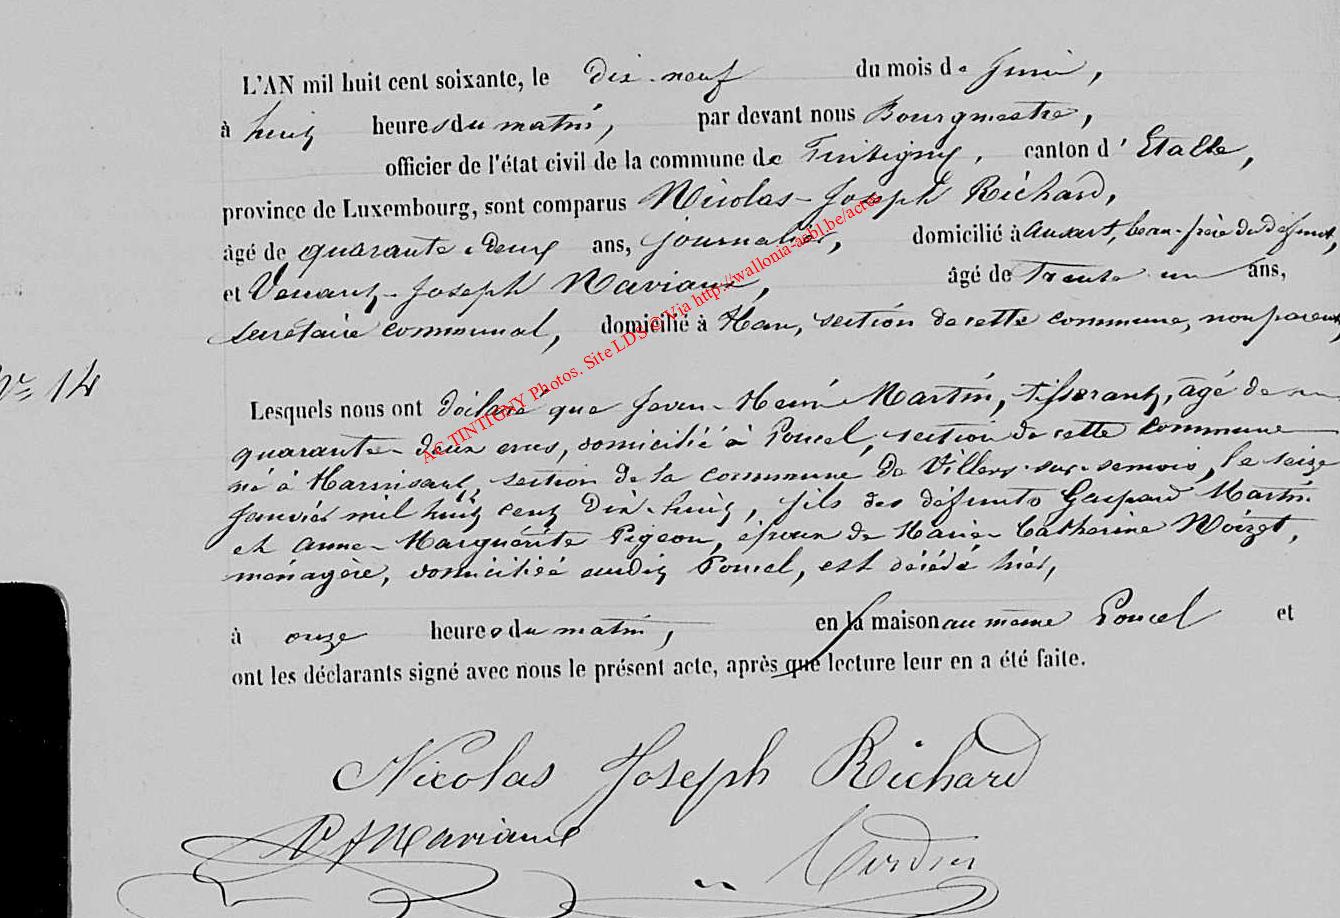 L'AN mil huit cent soixante, le dix-neuf du mois de Juin,
à huit heures du matin, par devant nous Bourgmestre,
officier de l'état civil de la commune de Tintigny, canton d'Etalle,
province de Luxembourg, sont comparus Nicolas-Joseph Richard,
âgé de quarante-deux ans, journalier, domicilié à Ansart, beau-frère du défunt,
et Venant-Joseph Maviaux, âgé de trente un ans,
secrétaire communal, domicilié à Han, section de cette commune, non parent,
N° 14
Lesquels nous ont déclaré que Jean-Henri Martin, tisserant, âgé de
quarante-deux ans, domicilié à Poncel, section de cette commune
né à Marinsart, section de la commune de Villers-sur-semois, le seize
Janvier mil huit cent dix-huit, fils des défunts Gaspard Martin
et Anne-Marguérite Pigeon, époux de Marie-Catherine Noizet,
ménagère, domiciliée audit Poncel, est décédé hier,
à onze heures du matin, en la maison au même Poncel et
ont les déclarants signé avec nous le présent acte, après que lecture leur en a été faite.
Nicolas Joseph Richard
VJ Maviaux
AC TINTIGNY Photos. Site LDS © Via http://wallonia-asbl.be/actes